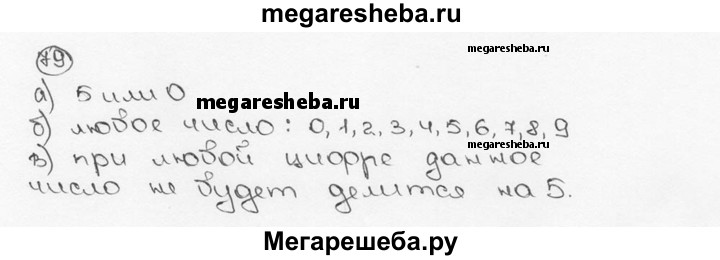 megaresheba.ru
79
megaresheba.ru
а) 5 или 0
megaresheba.ru
б) любое число: 0, 1, 2, 3, 4, 5, 6, 7, 8, 9
в) при любой цифре данное
megaresheba.ru
число не будет делится на 5.
Мегарешеба.ру